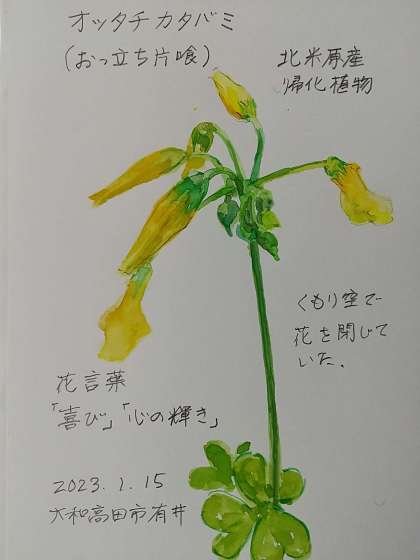 オッタチカタバミ
(おっ立ち片喰)
北米原産
帰化植物
くもり空で
花を閉じて
いた.
花言葉
「喜び」「心の輝き」
2023.1.15
大和高田市有井